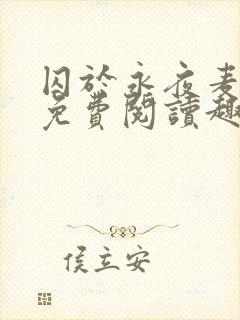 囚於永夜麦
免費閱讀趣
侯立安